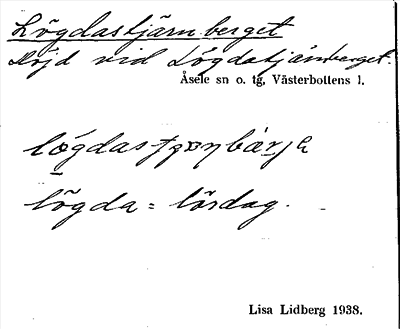 Lögdastjärnberget
Höjd vid Lögdatjärnberget.
Åsele sn o. tg, Västerbottens l.
lögda = lördag.
Lisa Lidberg 1938.